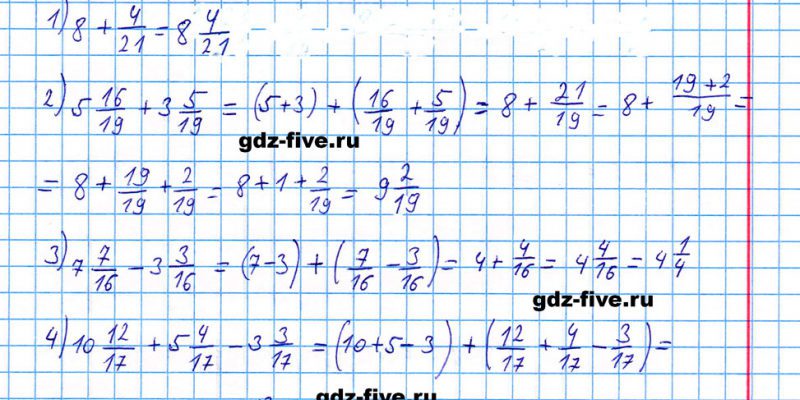 1) 8 + 4/21 = 8 4/21
2) 5 16/19 + 3 5/19 = (5+3) + (16/19 + 5/19) = 8 + 21/19 = 8 + 19+2/19 =
gdz-five.ru
= 8 + 19/19 + 2/19 = 8 + 1 + 2/19 = 9 2/19
3) 7 7/16 - 3 3/16 = (7-3) + (7/16 - 3/16) = 4 + 4/16 = 4 4/16 = 4 1/4
gdz-five.ru
4) 10 12/17 + 5 4/17 - 3 3/17 = (10+5-3) + (12/17 + 4/17 - 3/17) =
gdz-five.ru